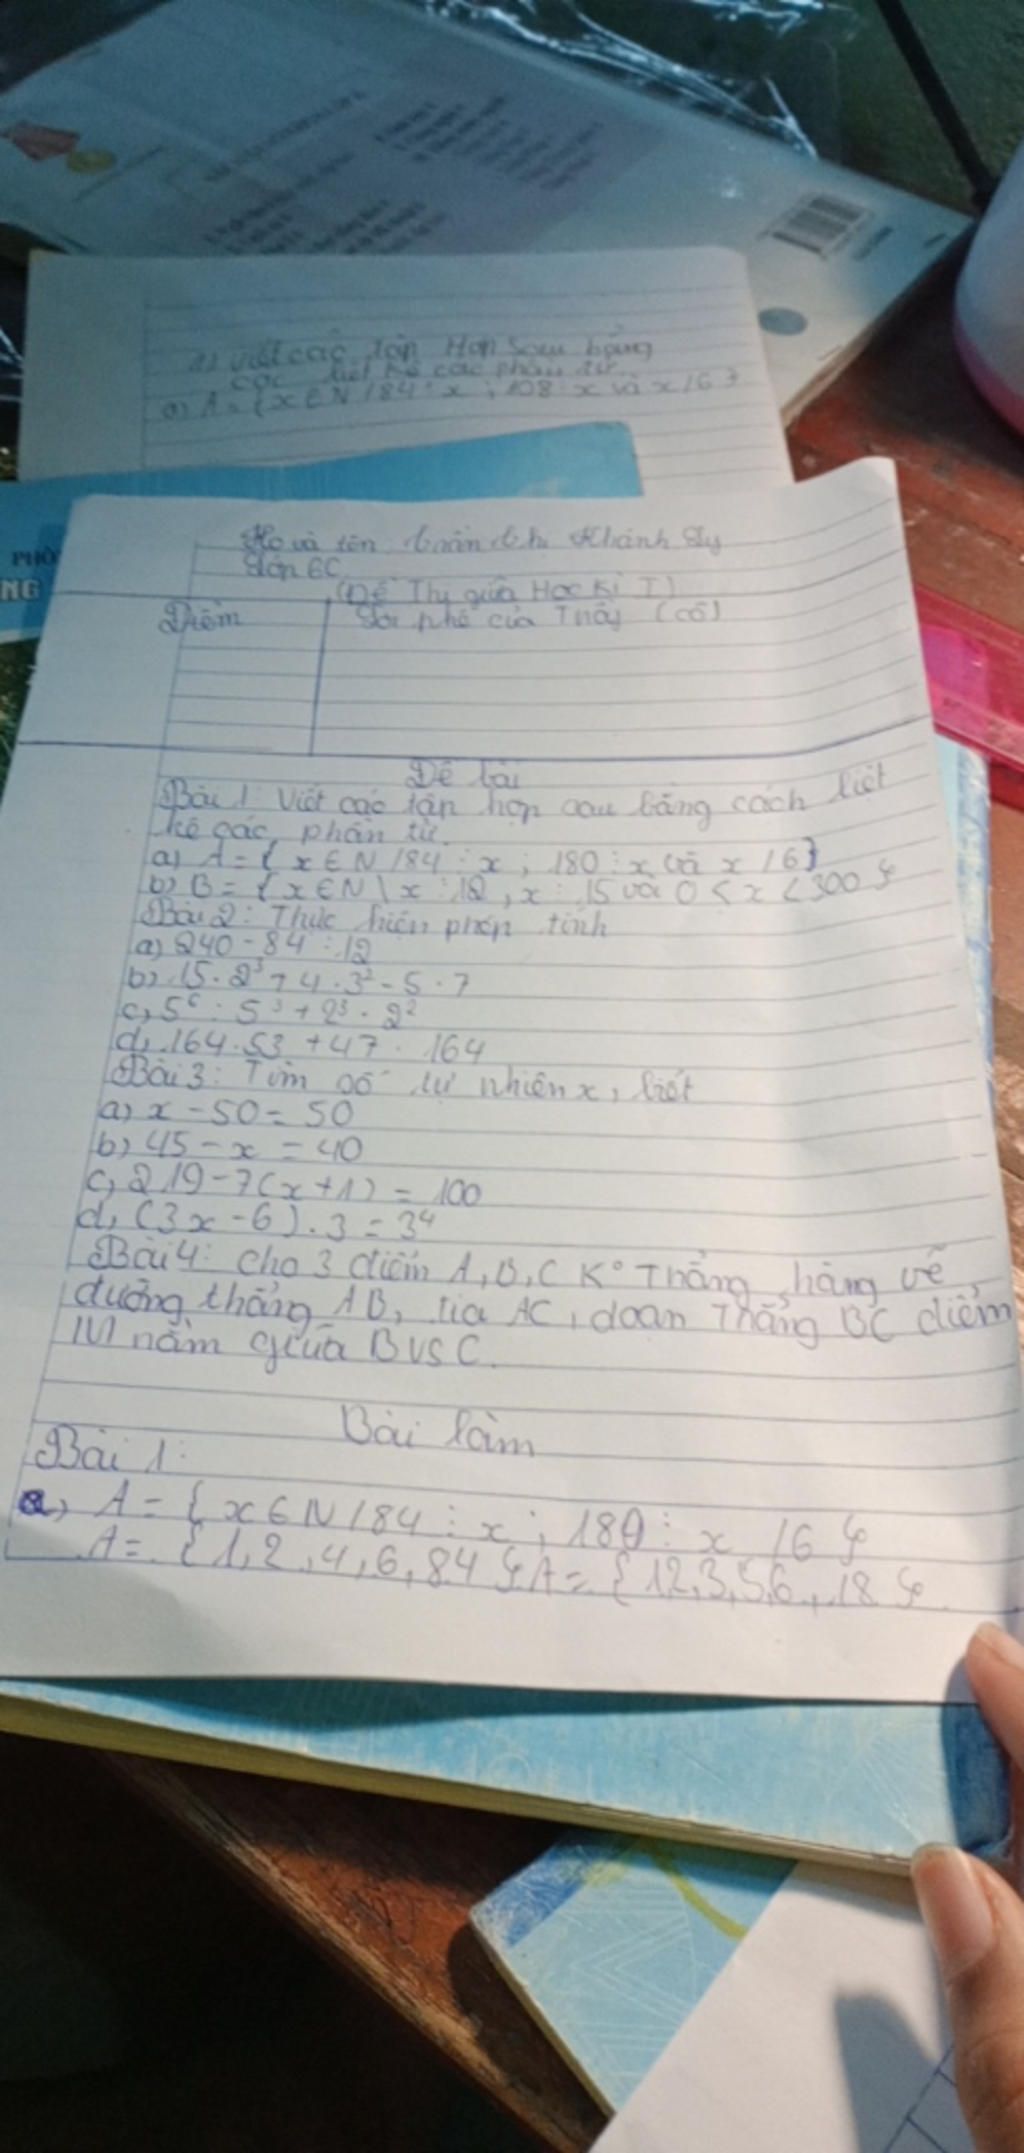 1) viết các tập Hợp sau bằng
các liệt kê các phần tử
a) A = {x ∈ N / 84 ⋮ x ; 108 ⋮ x và x / 6 }
PHÒ
NG
Họ và tên Khánh Ly
Lớp 6C
(Đề Thi giữa Học Kì I)
Điểm
Lời phê của Thầy (cô)
Đề bài
Bài 1: Viết các tập hợp sau bằng cách liệt
kê các phần tử
a) A = { x ∈ N / 84 ⋮ x ; 180 ⋮ x và x / 6 }
b) B = { x ∈ N \ x ⋮ 12 , x ⋮ 15 và 0 < x < 300 }
Bài 2: Thực hiện phép tính
a) 240 - 84 : 12
b) 15 . 2³ + 4 . 3² - 5 . 7
c) 5⁶ : 5³ + 2³ . 2²
d) 164 . 53 + 47 . 164
Bài 3: Tìm số tự nhiên x, biết
a) x - 50 = 50
b) 45 - x = 40
c) 219 - 7 (x + 1) = 100
d) (3x - 6) . 3 = 3⁴
Bài 4: Cho 3 điểm A, B, C K° Thẳng hàng vẽ
đường thẳng AB, tia AC, đoạn Thẳng BC điểm
M nằm giữa B vs C.
Bài làm
Bài 1:
a) A = { x ∈ N / 84 ⋮ x ; 180 ⋮ x / 6 }
A = { 1, 2, 4, 6, 84 } A = { 1 2, 3, 5, 6, , 18 }